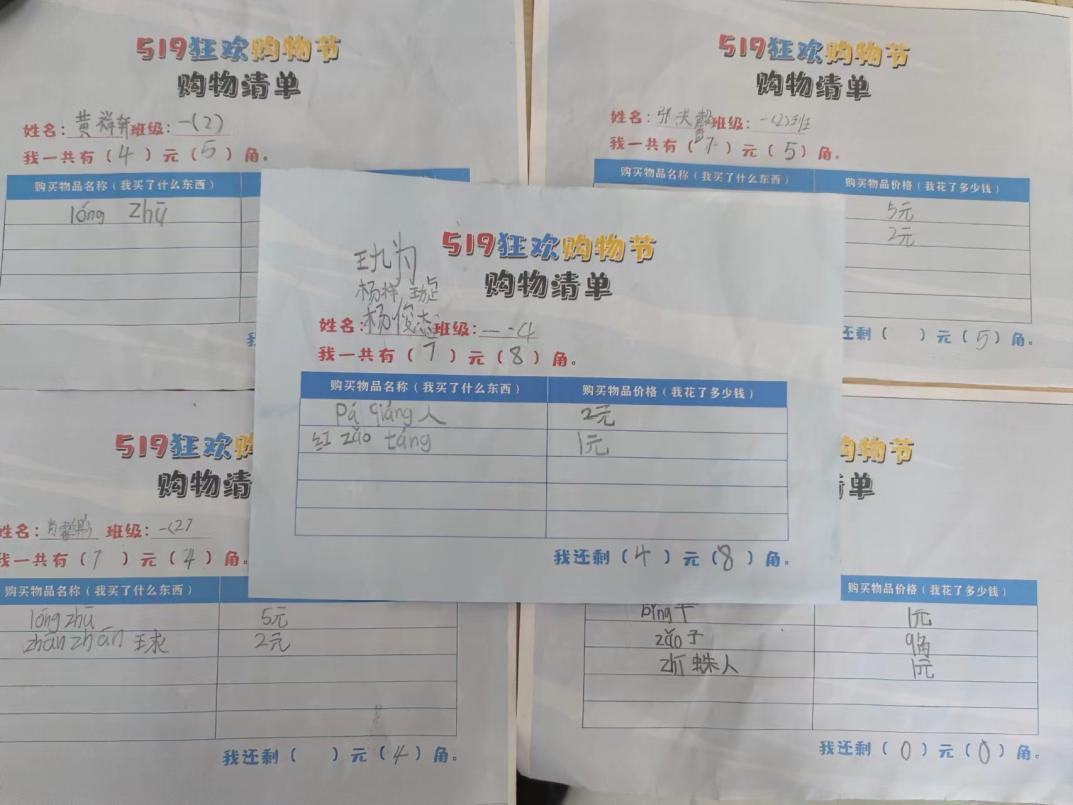 519狂欢购物节
购物清单
姓名：黄祥奔 班级：一(2)
我一共有（4）元（5）角。
购买物品名称（我买了什么东西）
lóng zhū
519狂欢购物节
购物清单
姓名：张 班级：一(2)班
我一共有（7）元（5）角。
购买物品名称（我买了什么东西） 购买物品价格（我花了多少钱）
5元
2元
还剩（ ）元（5）角。
519狂欢购物节
购物清单
杨梓
姓名：杨俊杰 班级：
我一共有（7）元（8）角。
购买物品名称（我买了什么东西） 购买物品价格（我花了多少钱）
pá qiáng人 2元
红 zǎo táng 1元
我还剩（4）元（8）角。
519狂欢购
购物清
姓名： 班级：一(2)
我一共有（7）元（4）角。
购买物品名称（我买了什么东西）
lóng zhū 5元
zhān zhān 球 2元
我还剩（ ）元（4）角。
物节
单
购买物品价格（我花了多少钱）
bǐng干 1元
zǎo子 9角
zhī蛛人 1元
我还剩（0）元（0）角。